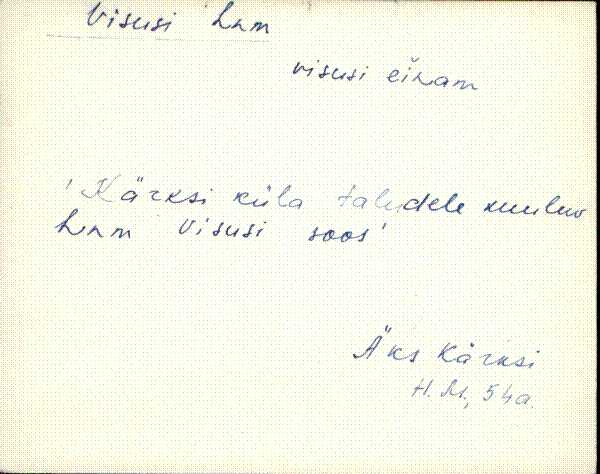 Visusi hnm
visusi eĭnam
'Kärksi küla taludele kuuluv
hnm Visusi soos'
Äks Kärksi
H. M., 54a.